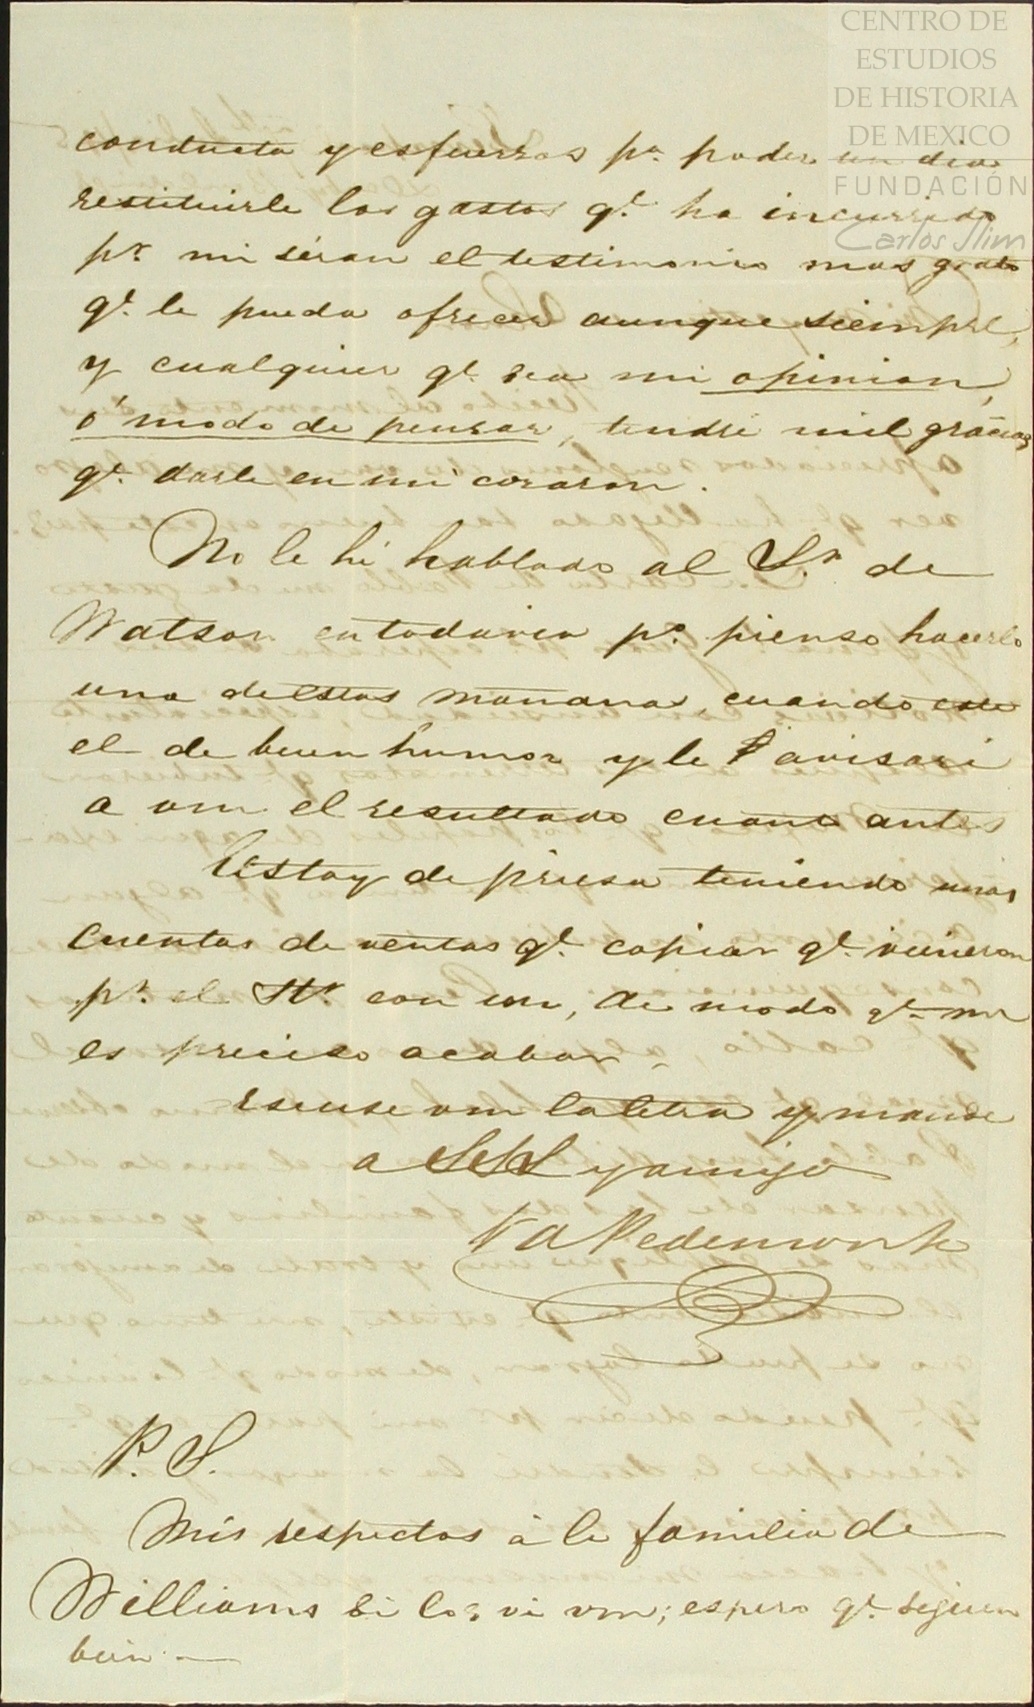 CENTRO DE
ESTUDIOS
DE HISTORIA
DE MEXICO
FUNDACIÓN
Carlos Slim
conducta y esfuerzos pa. poder un dia
restituirle los gastos qe. ha incurrido
pr. mi séran el testimonio mas grato
qe. le pueda ofrecer aunque siempre,
y cualquier qe. sea mi opinion,
ó modo de pensar, tendré mil gracias
qe. darle en mi corazon.
No le hé hablado al Sr. de
Watson entodavia po. pienso hacerlo
una de estas mañanas, cuando este
el de buen humor y le avisaré
a vm el resultado cuanto antes
Estoy de priesa teniendo unas
cuentas de ventas qe. copiar qe. vinieron
pr. el Str. con vm, de modo qe. me
es preciso acabar.
escuse vm la letra y mande
a SSS y amigo
P. S.
Mis respectos á la familia de
Williams si los vé vm; espero qe. siguen
bien. —